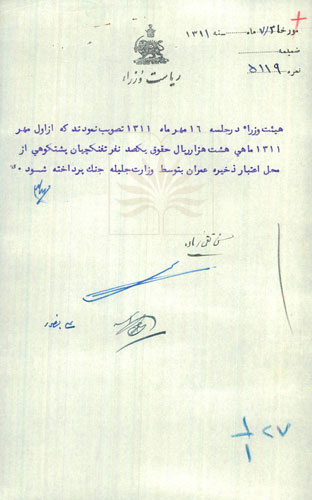 مورخه ۷/۲۱ ماه سنه ۱۳۱۱
ضمیمه
نمره ۵۱۱۹
ریاست وزراء
هیئت وزراء درجلسه ۱۶ مهرماه ۱۳۱۱ تصویب نمودند که ازاول مهر
۱۳۱۱ ماهی هشت هزارریال حقوق یکصد نفر تفنگچیان پشتکوهی از
محل اعتبار ذخیره عمران بتوسط وزارت جلیله جنگ پرداخته شود
تقی زاده
منصور
۲۷
۱